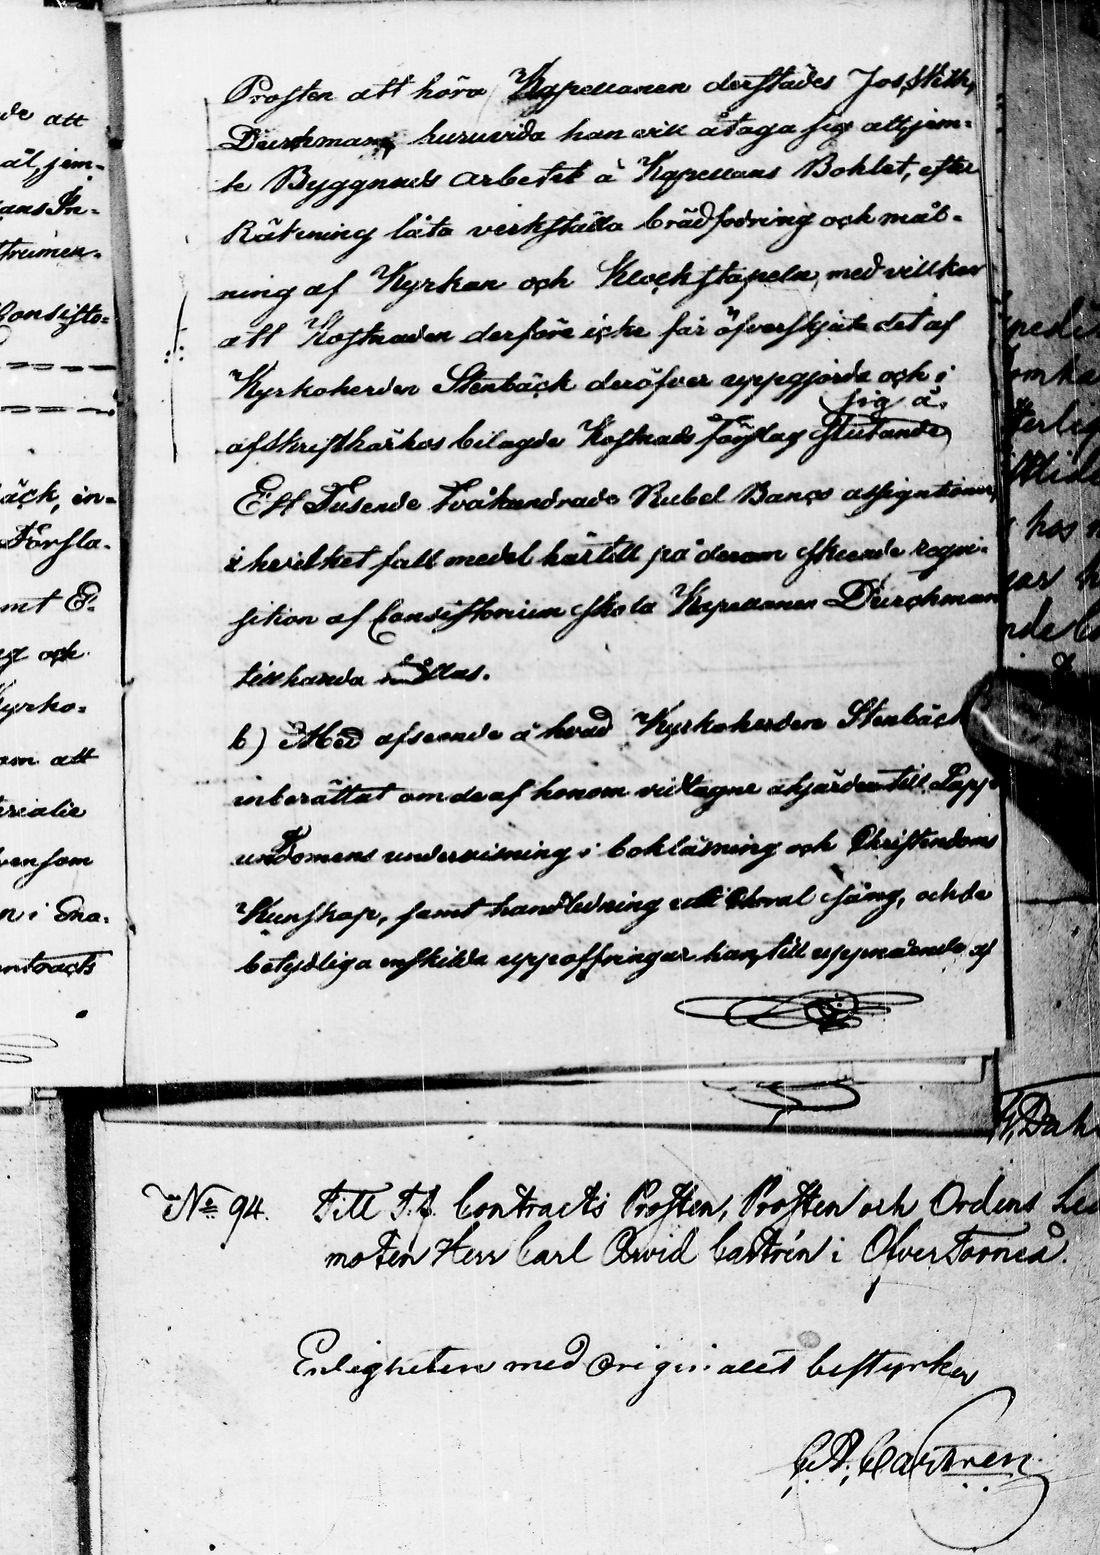 de att
ål, jem-
ans In-
strumen-
Consisto-
äck, in-
Försla-
amt E-
och
Kyrko-
om att
erialie
vensom
n i Ena-
ontracts
Prosten att höra Kapellanen derstädes Jos. Wilh.
Durchman, huruvida han vill åtaga sig att, jem-
te Byggnads arbetet å Kapellans Bohlet, efter
Räkning låta verkställa brädfodring och mål-
ning af Kyrkan och Klockstapeln, med villkor
att Kostnaden derföre icke får öfverskjuta det af
Kyrkoherden Stenbäck deröfver uppgjorda och i
afskrift härhos bilagde Kostnads förslag slutande
sig å
Ett Tusende Tvåhundrade Rubel Banco assignationer,
i hvilket fall medel härtill på derom skeende reqvi-
sition af Consistorium skola Kapellanen Durchman
tillhanda ställas.
b) Med afseende å hvad Kyrkoherden Stenbäck
inberättat om de af honom vidtagne åtgärder till Lapp-
ungdomens undervisning i bokläsning och Christendoms
Kunskap, samt handledning till Choral sång, och de
betydliga enskilda uppoffringar han, till uppnående af
hos
F. Dahl
No 94. Till T.f. Contracts Prosten, Prosten och Ordens Led
moten Herr Carl Arvid Castrén i Öfver Torneå.
Enligheten med originalet bestyrker
C. A. Castren